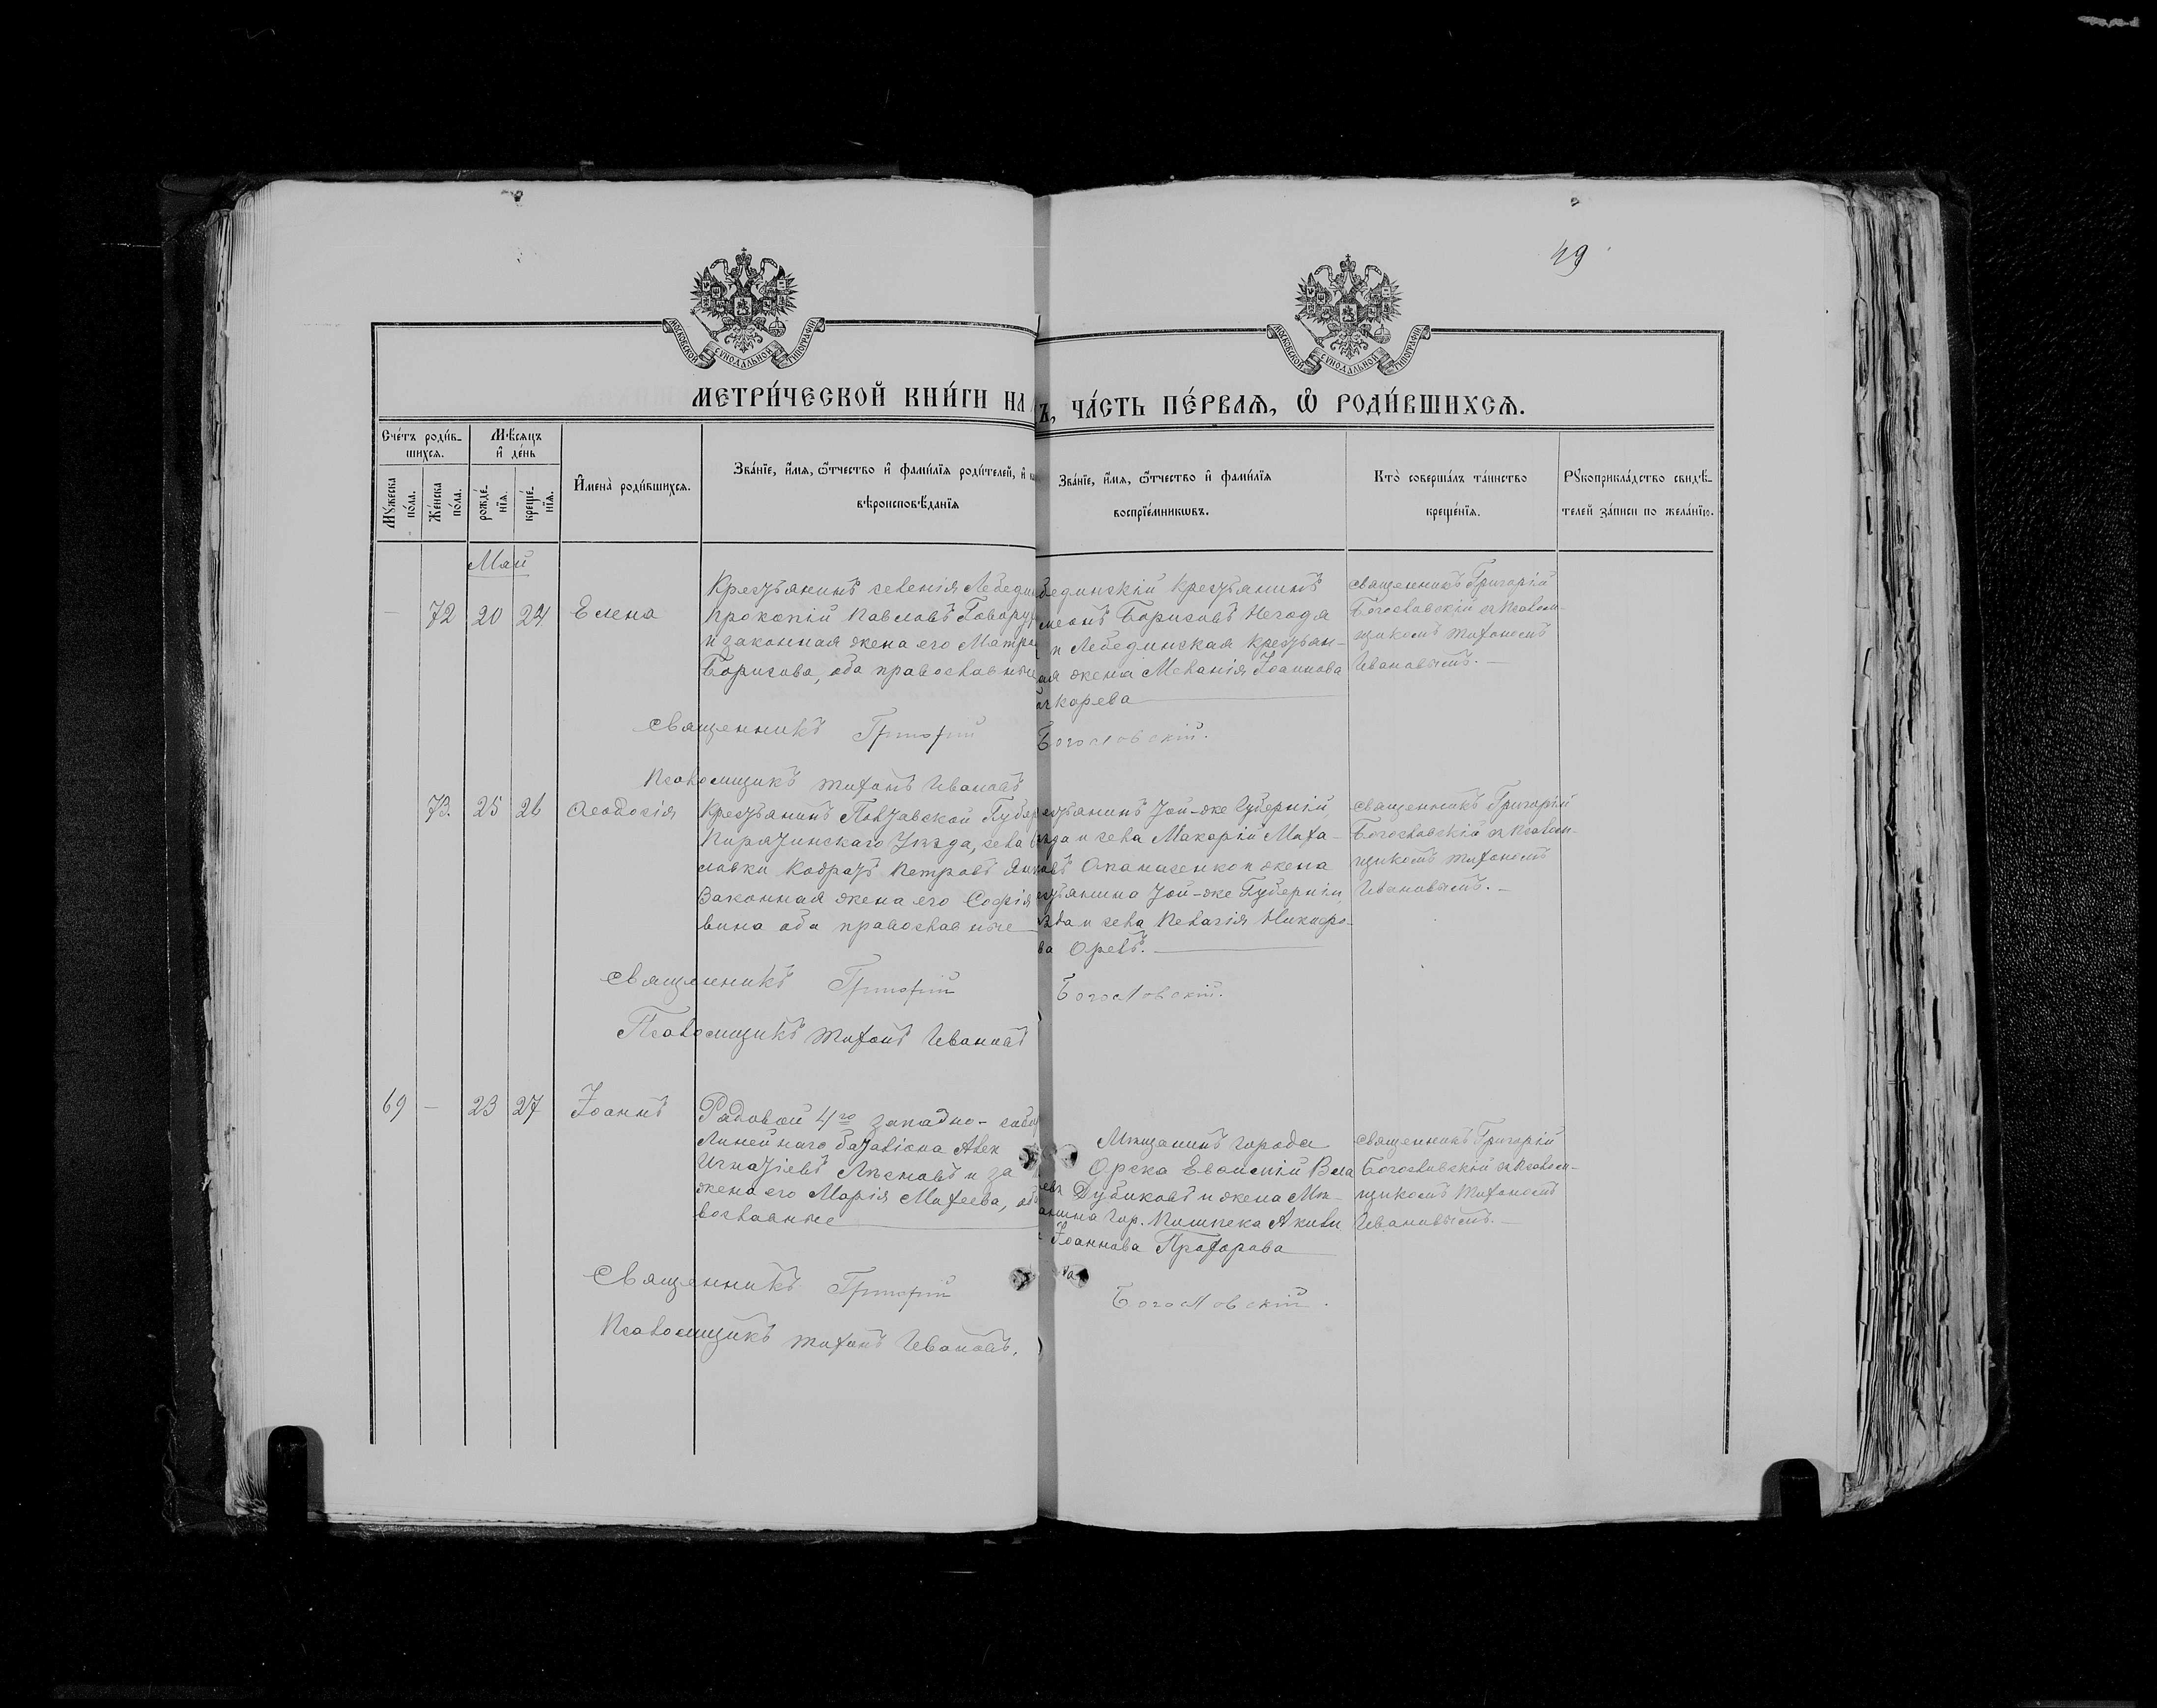 49
МОСКОВСКОЙ СѴНОДАЛЬНОЙ ТИПОГРАФІИ
МОСКОВСКОЙ СѴНОДАЛЬНОЙ ТИПОГРАФІИ
МЕТРИ́ЧЕСКОЙ КНИ́ГИ НА
Ъ, ЧА́СТЬ ПЕ́РВАѦ, Ѡ҆ РОДИ́ВШИХСѦ.
Сче́тъ роди́в-
шихсѧ.
Мѣ́сѧцъ
и҆ де́нь
Мꙋ́жеска по́ла.
Же́нска по́ла.
рожде́-нїѧ.
креще́-нїѧ.
И҆мена̀ роди́вшихсѧ.
Зва́нїе, и҆́мѧ, ѻ҆́тчество и҆ фами́лїѧ роди́телей, и҆
вѣроисповѣ́данїѧ
Зва́нїе, и҆́мѧ, ѻ҆́тчество и҆ фами́лїѧ
воспрїе́мникѡвъ.
Кто̀ соверша́лъ та́инство
креще́нїѧ.
Рꙋкоприкла́дство свидѣ́-
телей за́писи по жела́нїю.
Май
— 72 20 24 Елена
Крестьянинъ селенія Лебедин
Прокопій Павловъ Говору
и законная жена его Матро
Борисова, оба православные
бединскій крестьянинъ
меонъ Борисовъ Негода
и Лебединская крестьян-
ая жена Меланія Іоаннова
чкарева
священникъ Григорій
Богословскій съ псалом-
щикомъ Тихономъ
Ивановымъ.—
Священникъ Григорій Богословскій.
Псаломщикъ Тихонъ Ивановъ
73. 25 26 Ѳеодосія
Крестьянинъ Полтавской Губер
Пирятинскаго Уѣзда, села
славки Кодратъ Петровъ
Законная жена его Софія
вина оба православные
естьянинъ той-же Губерніи,
ѣзда и села Макарій Миха-
овъ Опанасенко и жена
естьянина той-же Губерніи,
ѣзда и села Пелагія Никифо-
ва Орелъ.
священникъ Григорій
Богословскій съ псалом-
щикомъ Тихономъ
Ивановымъ.—
Священникъ Григорій Богословскій.
Псаломщикъ Тихонъ Ивановъ
69 — 23 27 Іоаннъ
Рядовой 4го западно-сиби
Линейнаго баталіона Алек
Игнатіевъ Лѣсновъ и за
жена его Марія Матѳеева, об
вославные
Мѣщанинъ города
Орска Евфимій Вла
евъ Дубиковъ и жена Мѣ-
анина гор. Пишпека Акили
Іоаннова Прохорова
священникъ Григорій
Богословскій съ псалом-
щикомъ Тихономъ
Ивановымъ.—
Священникъ Григорій Богословскій.
Псаломщикъ Тихонъ Ивановъ.